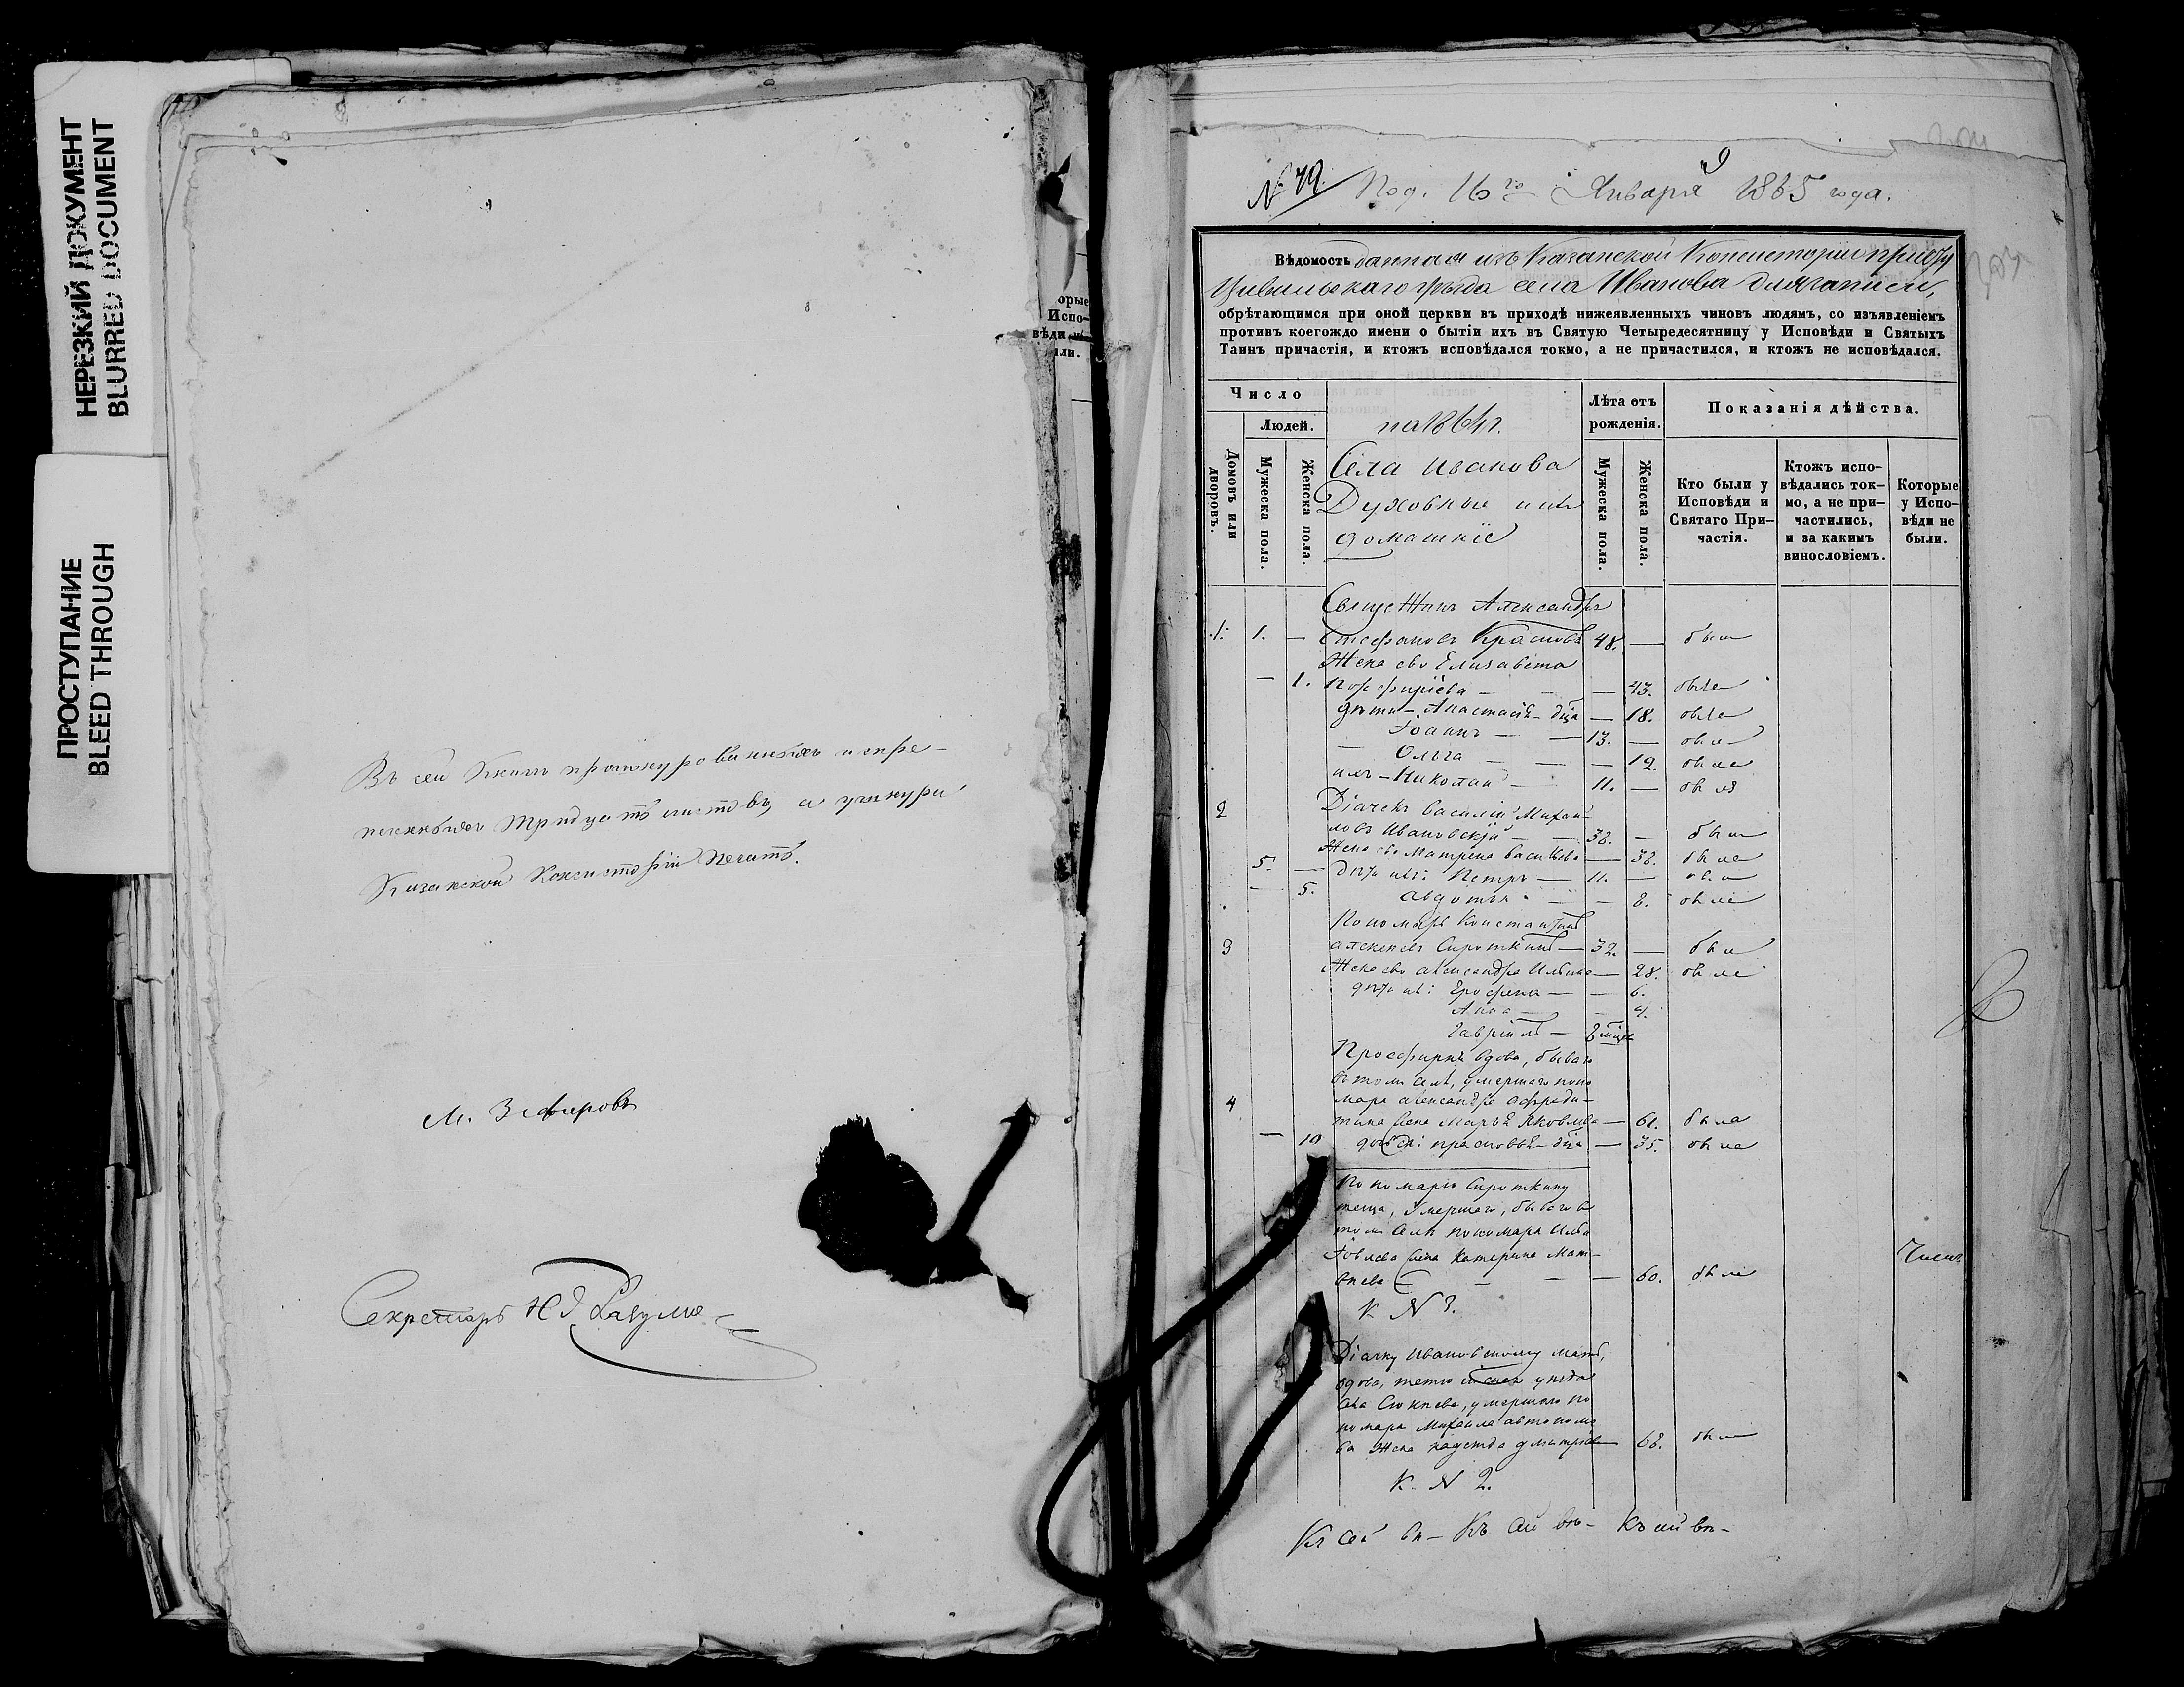 НЕРЕЗКИЙ ДОКУМЕНТ
BLURRED DOCUMENT
ПРОСТУПАНИЕ
BLEED THROUGH
Въ сей Книгѣ прошнурованныхъ и скре-
тридцать листовъ, а у шнура
Казанской Консисторіи Печать.
М. Зефировъ
Секретарь
орые
Испо-
вѣди не
ли.
№ 79. Под. 16го Января 1865 года.
Вѣдомость данная изъ Казанской Консисторіи
Цивильскаго уѣзда села Иванова для записи,
обрѣтающимся при оной церкви въ приходѣ нижеявленныхъ чиновъ людямъ, со изъявленіемъ
противъ коегождо имени о бытіи ихъ въ Святую Четыредесятницу у Исповѣди и Святыхъ
Таинъ причастія, и ктожъ исповѣдался токмо, а не причастился, и ктожъ не исповѣдался.
Число
Людей.
Домовъ или дворовъ.
Мужеска пола.
Женска пола.
на 1864 г.
Села Иванова
Духовные и ихъ
домашніе
Лѣта отъ рожденія.
Мужеска пола.
Женска пола.
Показанія дѣйства.
Кто были у Исповѣди и Святаго При-частія.
Ктожъ испо-вѣдались ток-мо, а не при-частились, и за какимъ винословіемъ.
Которые у Испо-вѣди не были.
Александръ
1. 1. — Стефановъ Красновъ 48. — былъ
Жена его Елизавета
— 1. Порфиріева — — — 43. была
дѣти — Анастасія — дѣца — 18. была
Іоаннъ — — 13. — былъ
Ольга — — — 12. была
ихъ — Николай — 11. — былъ
2 Діачекъ Василій Михай-
ловъ Ивановскій — — 32. — былъ
Жена его Матрена Васильева — 32. была
5. — дѣти ихъ: Петръ — 11. — былъ
— 5. Авдотья — — 8. была
Пономарь Константинъ
3 Алексеевъ Сироткинъ — 32. — былъ
Жена его Александра Ильина — 28. была
дѣти ихъ: Ерофена — — 6.
Анна — — 4.
Гавріилъ —
Просфирня вдова, бываго
въ томъ селѣ, умершаго поно
4 маря Александра
жена Марья Яковлева — 61. была
— 10 дочь ея: Прасковья — дѣца — 35. была
Пономарю Сироткину
теща, умершаго, бываго въ
томъ селѣ пономаря Ильи
жена Катерина Мат-
веева — — — — 60. была
К № 3.
Діачку Ивановскому мать,
вдова, уѣзда
села умершаго по
номаря Михаила Автономо
ва жена Надежда Дмитріева 68. была
К № 2.
Къ сей вѣ- Къ сей вѣ- Къ сей вѣ-